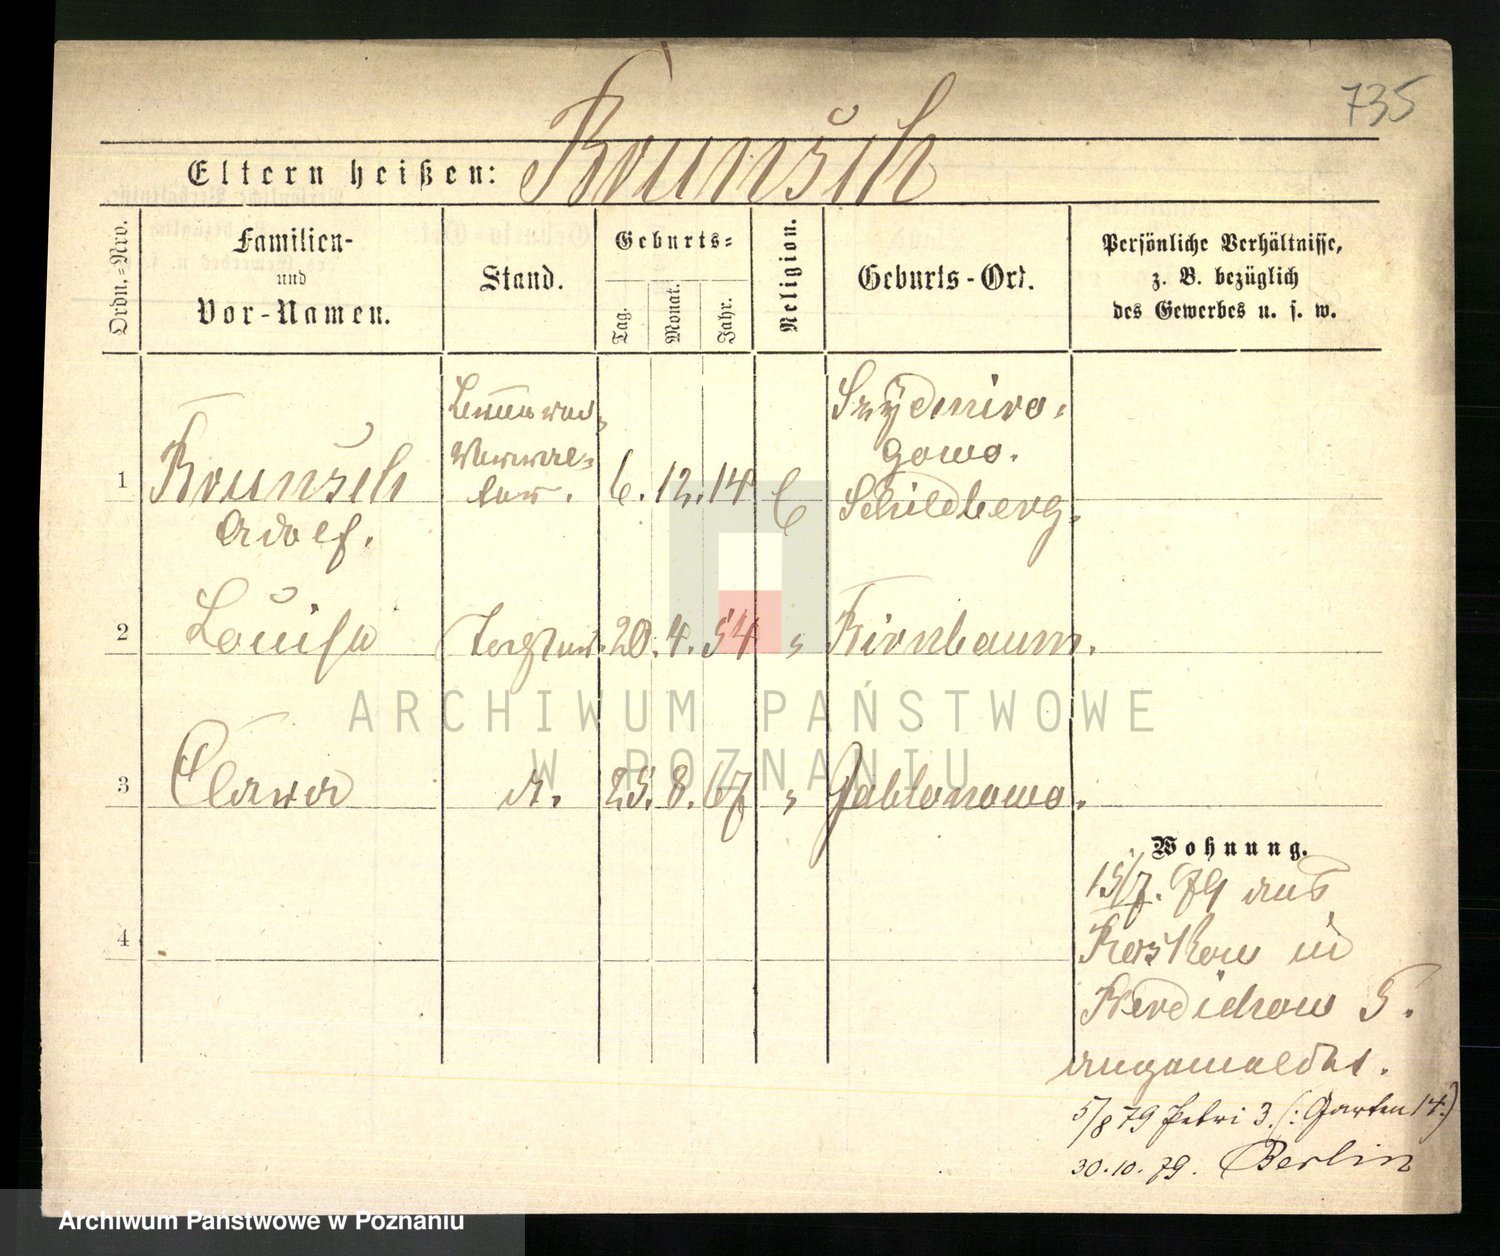 735
Eltern heißen: Brunsch
Ordn.-Nro.
Familien-
und
Vor-Namen.
Stand.
Geburts-
Tag.
Monat.
Jahr.
Religion.
Geburts-Ort.
Persönliche Verhältnisse,
z. B. bezüglich
des Gewerbes u. s. w.
1 Brunsch
Adolf.
Verwal-
ter.
6. 12. 14
Schildberg.
2 Louise
Tochter. 20. 4. 54 " Birnbaum.
3 Clara
d. 25. 8. 67 " Jablonowo.
4
Wohnung.
15/7. 79 aus
in
Berdichow 5.
angemeldet.
5/8 79 Petri 3. (: Garten 14:)
30.10.79. Berlin
ARCHIWUM PAŃSTWOWE
W POZNANIU
Archiwum Państwowe w Poznaniu